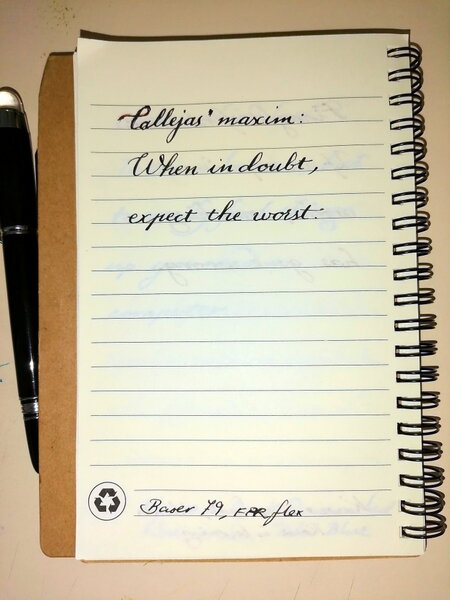 Callejas' maxim:
When in doubt,
expect the worst.
79, FPR flex